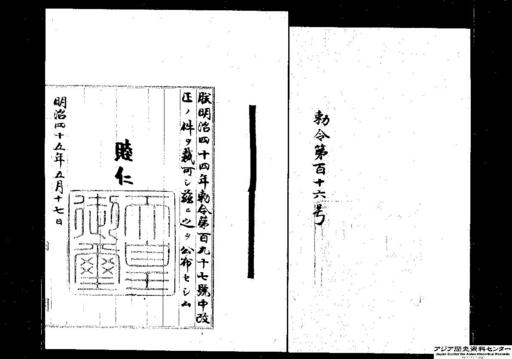 勅令第百十六号
朕明治四十四年勅令第百九十七號中改
正ノ件ヲ裁可シ茲ニ之ヲ公布セシム
睦仁
天皇
御璽
明治四十五年五月十七日
アジア歴史資料センター
Japan Center for Asian Historical Records